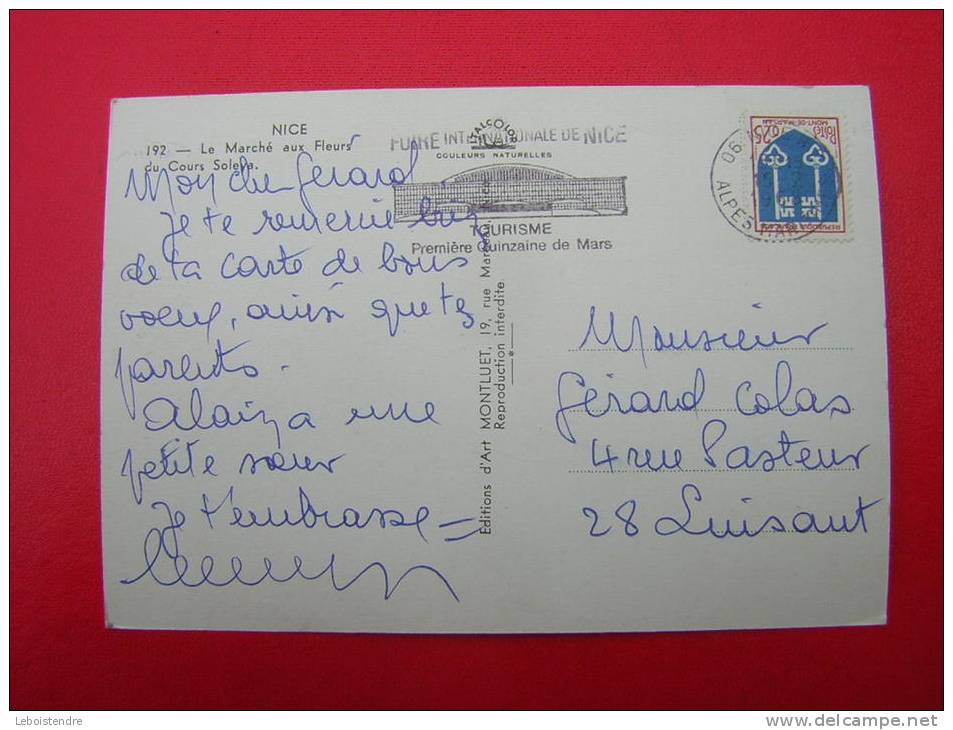 NICE
192 — Le Marché aux Fleurs
du Cours Saleya.
ITALCOLOR
COULEURS NATURELLES
FOIRE INTERNATIONALE DE NICE
TOURISME
Première Quinzaine de Mars
06
ALPES MAR
0.25 POSTES
MONT-DE-MARSAN
REPUBLIQUE FRANÇAISE
Mon cher Gérard
Je te remercie bien
de ta carte de bons
voeux, ainsi que tes
parents.
Alain a une
petite soeur
Je t'embrasse =
Editions d'Art MONTLUET, 19, rue Nice
Reproduction interdite
Monsieur
Gérard Colas
4 rue Pasteur
28 Luisant
Leboistendre
www.delcampe.net